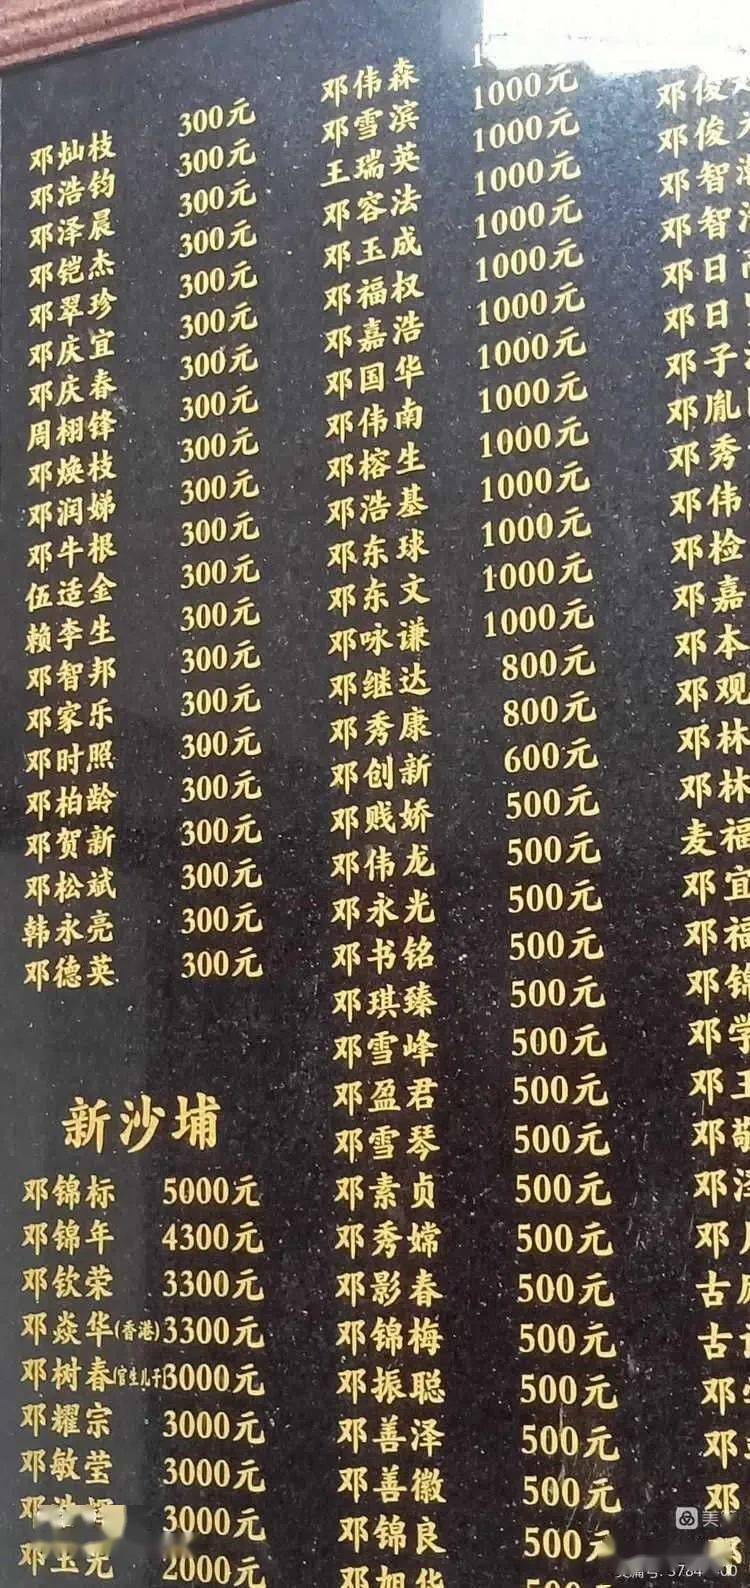 邓灿枝 300元
邓浩钧 300元
邓泽晨 300元
邓铠杰 300元
邓翠珍 300元
邓庆宜 300元
邓庆春 300元
周栩锋 300元
邓焕枝 300元
邓润娣 300元
邓牛根 300元
伍适金 300元
赖李生 300元
邓智邦 300元
邓家乐 300元
邓时照 300元
邓柏龄 300元
邓贺新 300元
邓松斌 300元
韩永亮 300元
邓德英 300元
新沙埔
邓锦标 5000元
邓锦年 4300元
邓钦荣 3300元
邓焱华(香港) 3300元
邓树春(官生儿子) 3000元
邓耀宗 3000元
邓敏莹 3000元
邓 3000元
邓玉光 2000元
邓伟森
邓雪滨 1000元
王瑞英 1000元
邓容法 1000元
邓玉成 1000元
邓福权 1000元
邓嘉浩 1000元
邓国华 1000元
邓伟南 1000元
邓榕生 1000元
邓浩基 1000元
邓东球 1000元
邓东文 1000元
邓咏谦 1000元
邓继达 800元
邓秀康 800元
邓创新 600元
邓贱娇 500元
邓伟龙 500元
邓永光 500元
邓书铭 500元
邓琪臻 500元
邓雪峰 500元
邓盈君 500元
邓雪琴 500元
邓素贞 500元
邓秀嫦 500元
邓影春 500元
邓锦梅 500元
邓振聪 500元
邓善泽 500元
邓善徽 500元
邓锦良 500元
邓旭华
邓俊
邓俊
邓智
邓智
邓日
邓日
邓子
邓胤
邓秀
邓伟
邓检
邓嘉
邓本
邓观
邓林
邓林
麦福
邓宜
邓福
邓锦
邓学
邓玉
邓敬
邓泽
邓
古
古
邓
邓
邓
邓
美